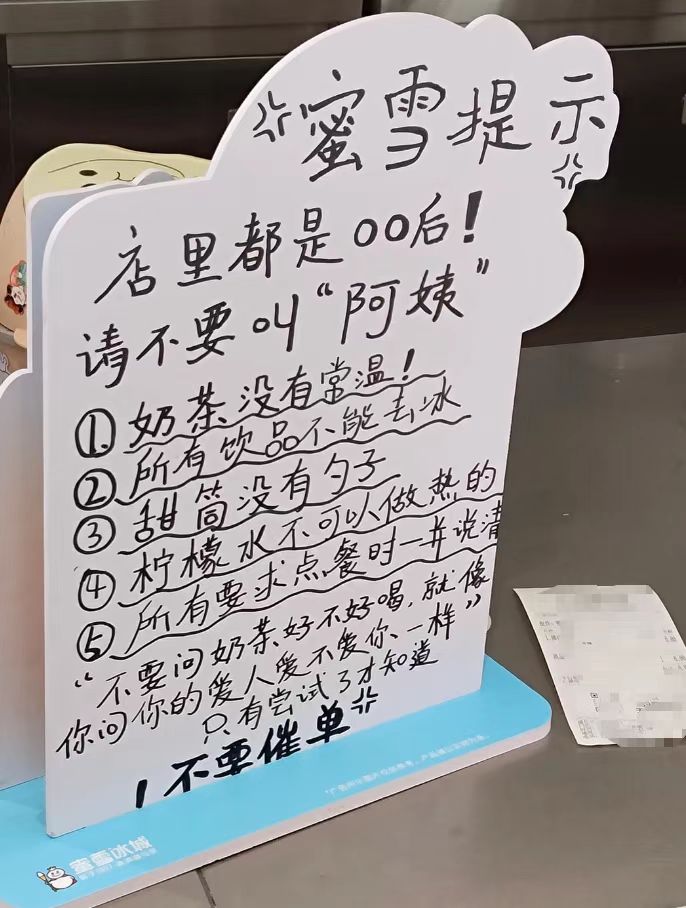 蜜雪提示
店里都是00后!
请不要叫“阿姨”
① 奶茶没有常温!
② 所有饮品不能去冰
③ 甜筒没有勺子
④ 柠檬水不可以做热的
⑤ 所有要求点餐时一并说清
“不要问奶茶好不好喝,就像
你问你的爱人爱不爱你、一样”
只有尝试了才知道
! 不要催单
蜜雪冰城